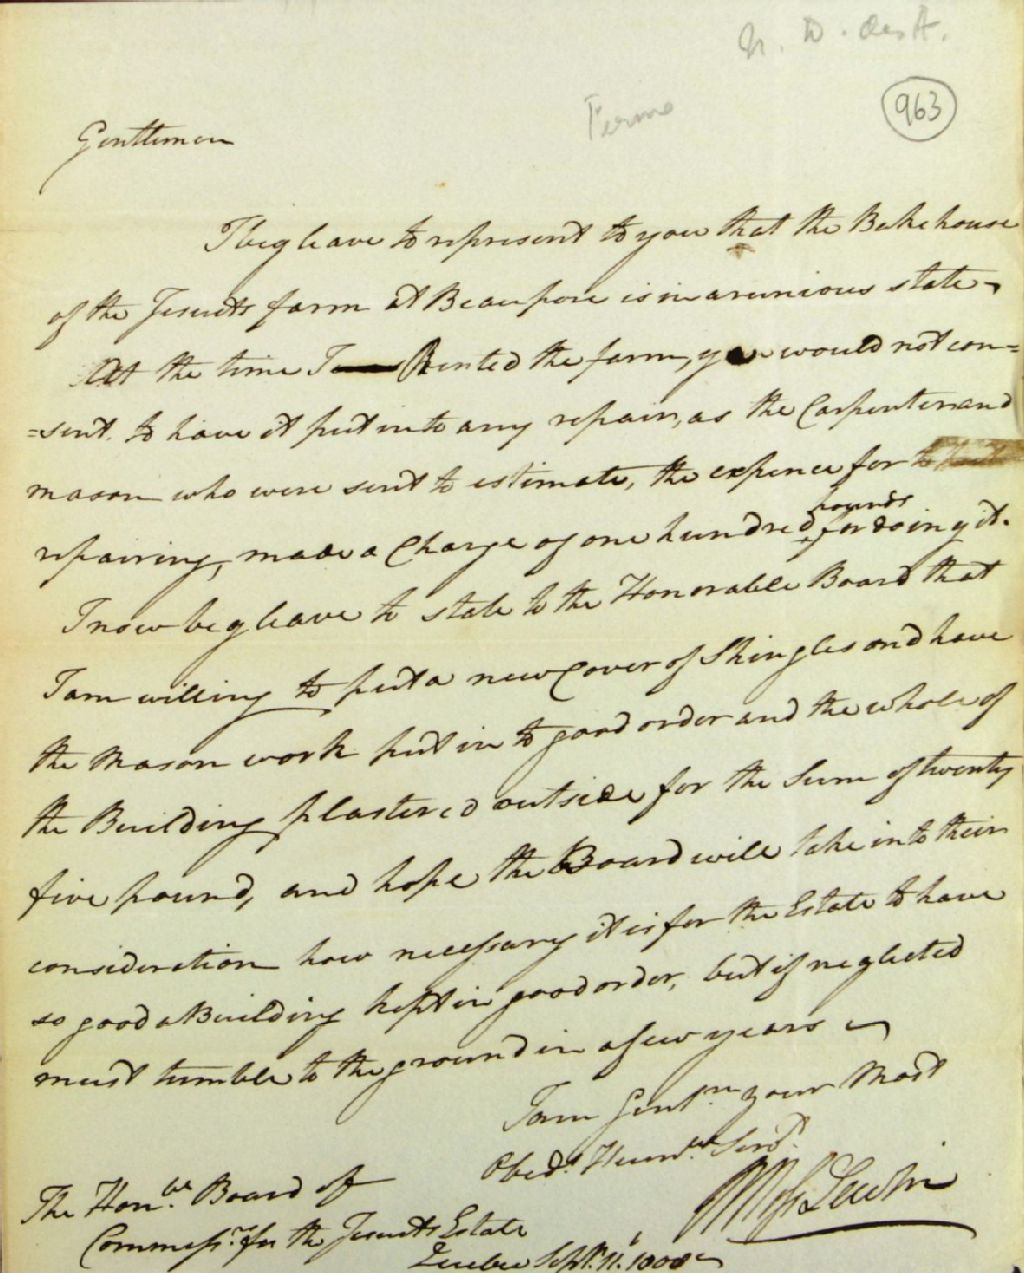 N. D. des A.
Ferme
963
Gentlemen
I beg leave to represent to you that the Bakehouse
of the Jesuits farm at Beauport is in a runious state
At the time I Rented the farm, you would not con=
=sent to have it put into any repair, as the Carpenter and
mason who were sent to estimate, the expence for
repairing, made a Charge of one hundred pounds for doing it.
I now beg leave to state to the Honorable Board that
I am willing to put a new Cover of Shingles and have
the Mason work put in to good order and the whole of
the Building plastered outside for the Sum of twenty
five pound, and hope the Board will take into their
consideration how necessary it is for the Estate to have
so good a Building kept in good order, but if neglected
must tumble to the ground in a few years
I am Gentn your Most
Obedt Humble Servt
The Honble Board of
Commissrs for the Jesuits Estate
Quebec Septr 11, 1808